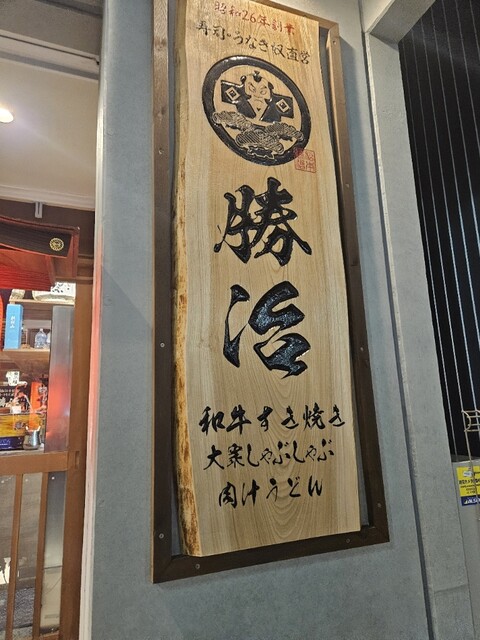 昭和26年創業
寿司・うなぎ奴直営
勝治
和牛すき焼き
大衆しゃぶしゃぶ
肉汁うどん